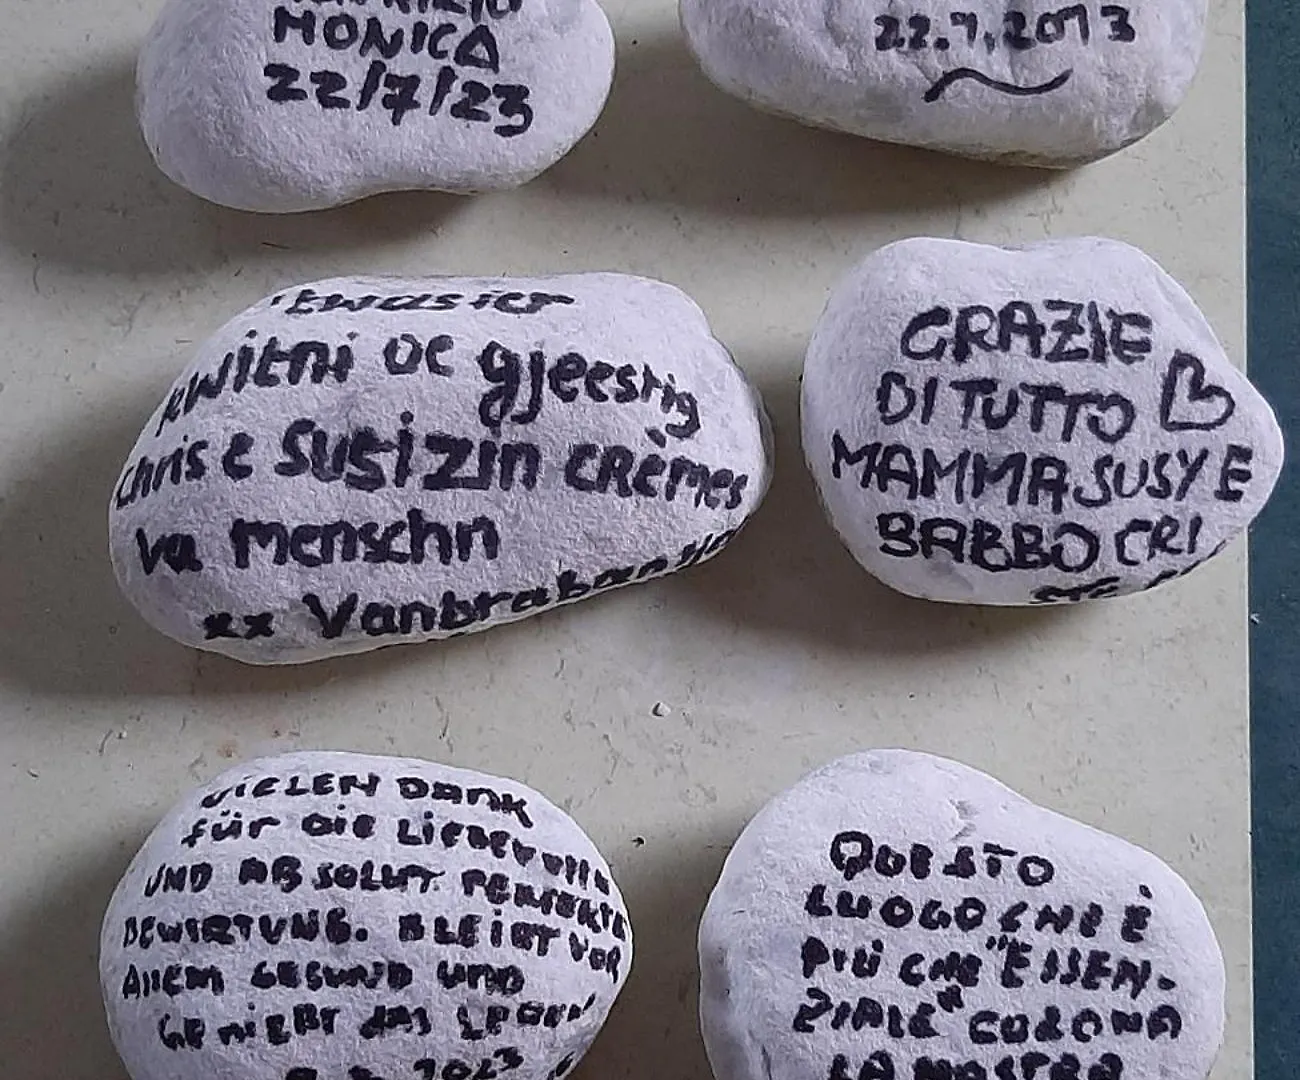 MONICA
22/7/23
22.7.2023
kwitni oc gjeestig
Chris e Susi zin crèmes
va menschn
xx Vanbraban
GRAZIE
DI TUTTO
MAMMA SUSY E
BABBO CRI
VIELEN DANK
für die Liebevolle
UND ABSOLUT PERFEKTE
BEWIRTUNG. BLEIBT VOR
AllEM GESUND UND
GENIEßT das LEBEN!
2023
QUESTO
LUOGO CHE È
PIÙ CHE "ESSEN-
ZIALE" CORONA
LA NOSTRA